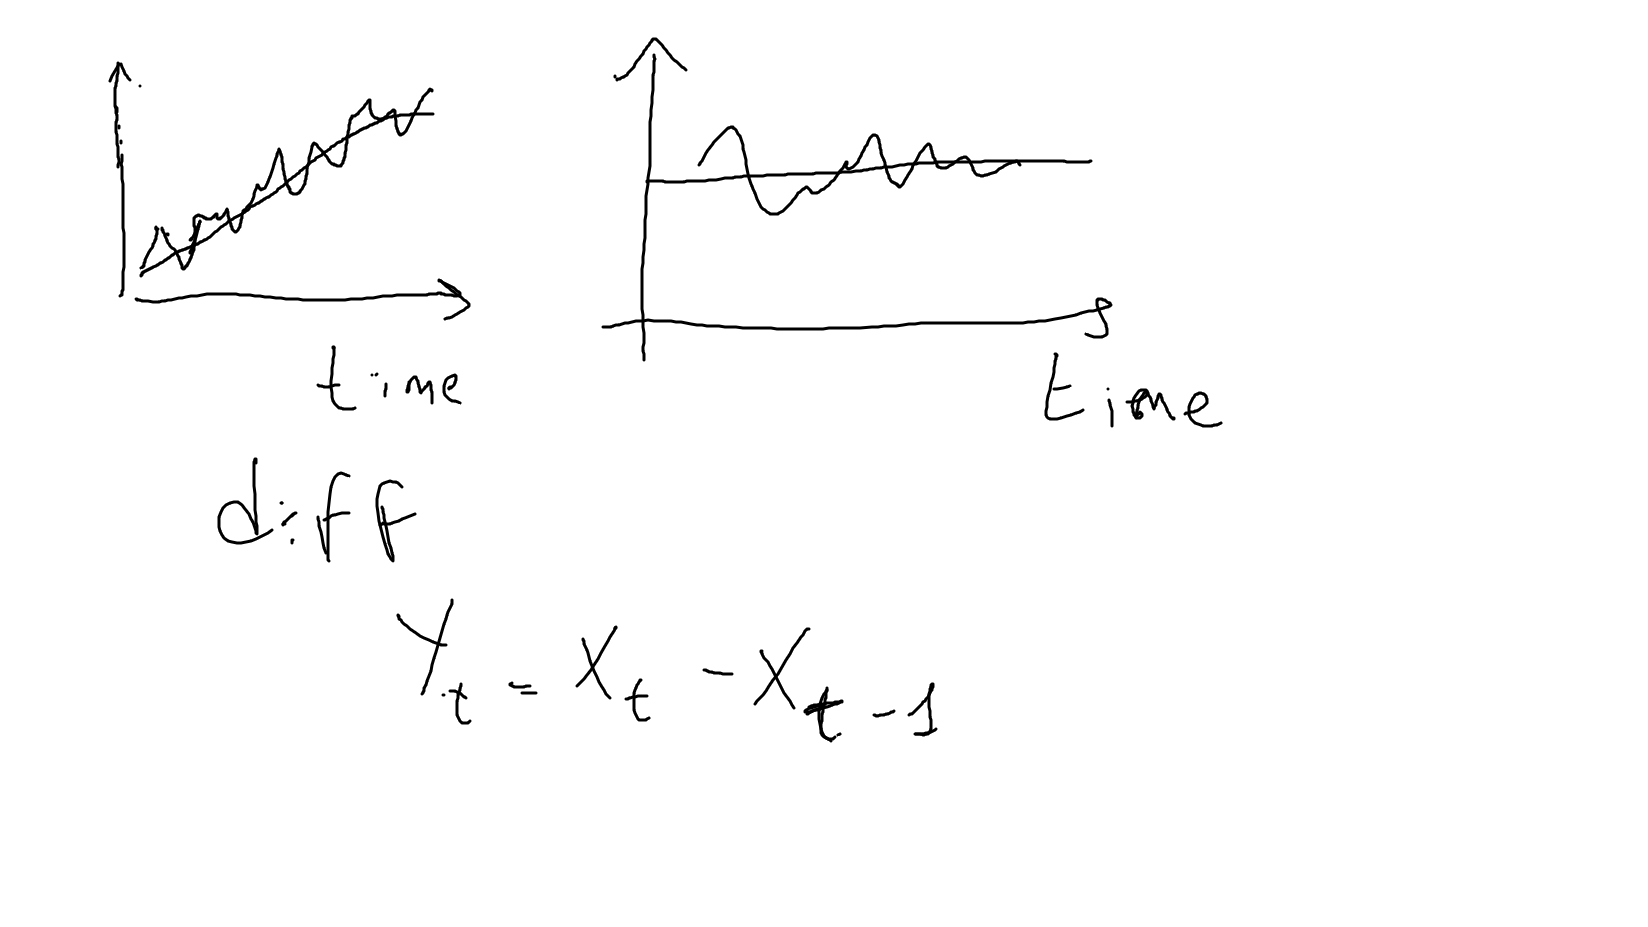 time
time
diff
Yt = Xt - Xt-1